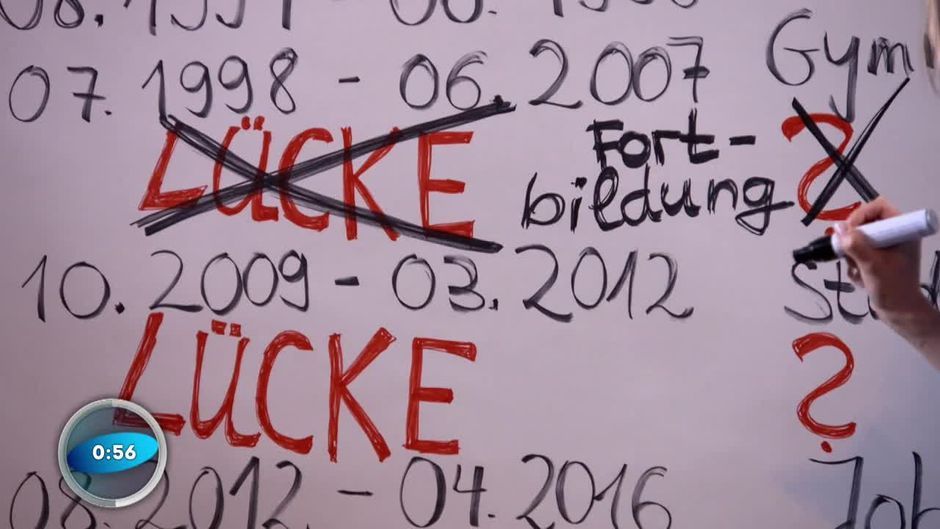 07.1998 - 06.2007 Gym
LÜCKE Fort-
bildung
10.2009 - 03.2012
LÜCKE ?
08.2012 - 04.2016 Job
0:56